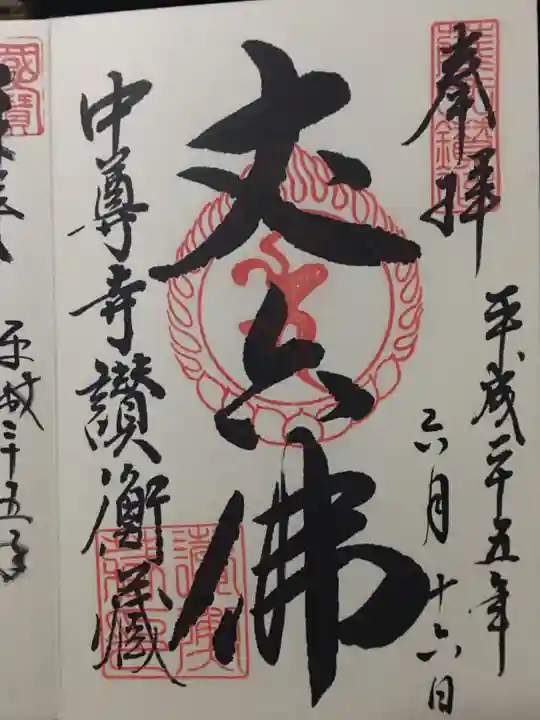 奉拝
平成二十五年
六月十六日
丈六佛
中尊寺讃衡蔵
國寶
平成二十五年